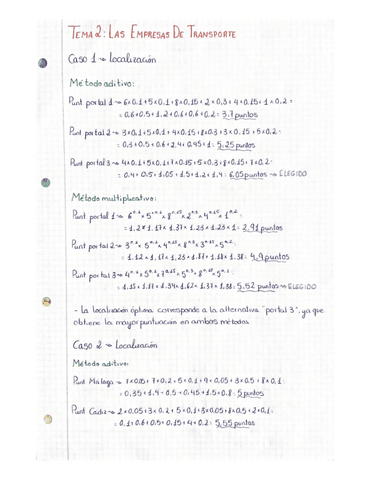 TEMA 2: LAS EMPRESAS DE TRANSPORTE
Caso 1 → Localización
Método aditivo:
Punt portal 1 → 6×0.1 + 5×0.1 + 8×0.15 + 2×0.3 + 4×0.15 + 1×0.2 =
= 0.6 + 0.5 + 1.2 + 0.6 + 0.6 + 0.2 = 3.7 puntos
Punt portal 2 → 3×0.1 + 5×0.1 + 4×0.15 + 8×0.3 + 3×0.15 + 5×0.2 =
= 0.3 + 0.5 + 0.6 + 2.4 + 0.45 + 1 = 5.25 puntos
Punt portal 3 → 4×0.1 + 5×0.1 + 7×0.15 + 5×0.3 + 8×0.15 + 7×0.2 =
= 0.4 + 0.5 + 1.05 + 1.5 + 1.2 + 1.4 = 6.05 puntos → ELEGIDO
Método multiplicativo:
Punt portal 1 → 6^0.1 × 5^0.1 × 8^0.15 × 2^0.3 × 4^0.15 × 1^0.2 =
= 1.2 × 1.17 × 1.37 × 1.23 × 1.23 × 1 = 2.91 puntos
Punt portal 2 → 3^0.1 × 5^0.1 × 4^0.15 × 8^0.3 × 3^0.15 × 5^0.2 =
= 1.12 × 1.17 × 1.23 × 1.87 × 1.18 × 1.38 = 4.9 puntos
Punt portal 3 →
= 1.15 × 1.17 × 1.34 × 1.62 × 1.37 × 1.38 = 5.52 puntos → ELEGIDO
- La localización óptima corresponde a la alternativa "portal 3", ya que
obtiene la mayor puntuación en ambos métodos.
Caso 2 → Localización
Método aditivo:
Punt Málaga → 7×0.05 + 7×0.2 + 5×0.1 + 9×0.05 + 3×0.5 + 8×0.1 =
= 0.35 + 1.4 + 0.5 + 0.45 + 1.5 + 0.8 = 5 puntos
Punt Cádiz → 2×0.05 + 3×0.2 + 5×0.1 + 3×0.05 + 8×0.5 + 2×0.1 =
= 0.1 + 0.6 + 0.5 + 0.15 + 4 + 0.2 = 5.55 puntos